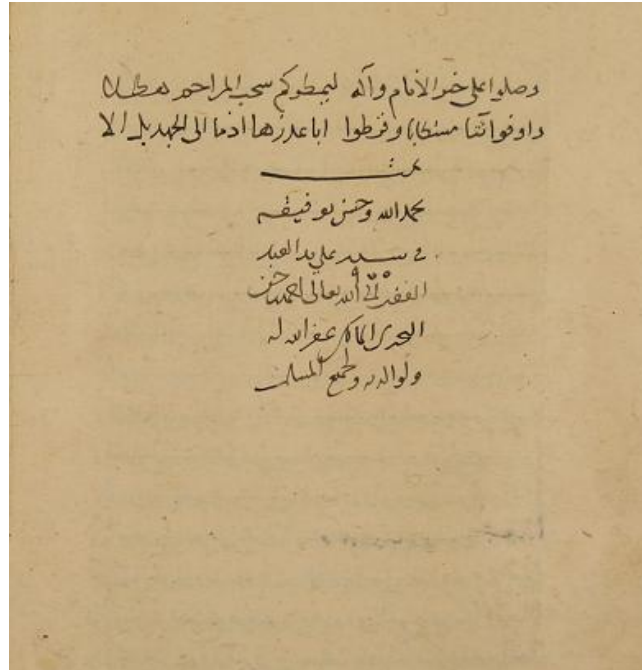 وصلوا على خير الانام وآله ليمطركم سحب المراحم هطلا
واوفوا ثنا وفرطوا اذما الى الجهد بل الا
تمت
بحمد الله وحسن توفيقه
في على يد العبد
الفقير الى الله تعالى احمد بن حسن
المالكي غفر الله له
ولوالديه ولجميع المسلمين